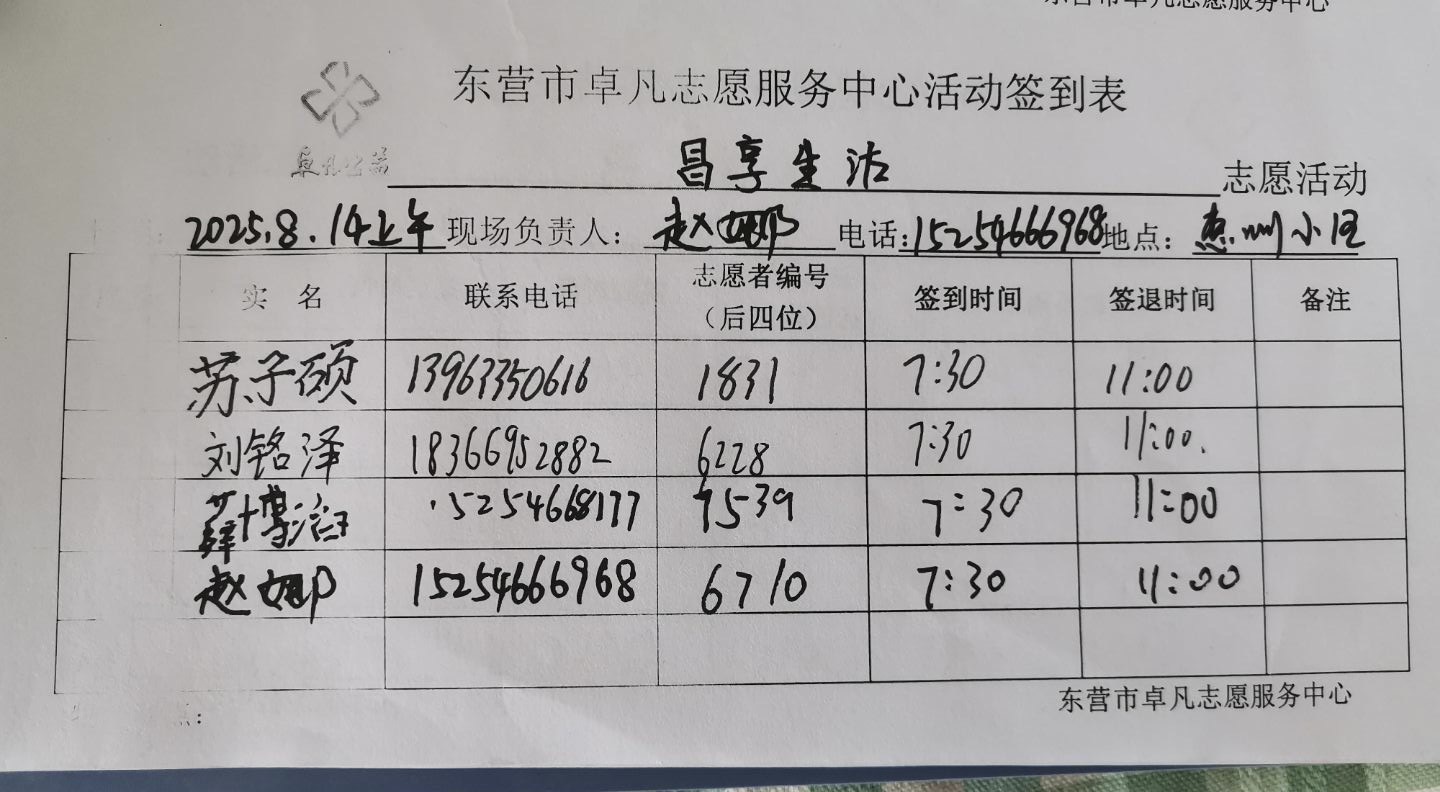 东营市卓凡志愿服务中心
东营市卓凡志愿服务中心活动签到表
卓凡公益
昌享生活 志愿活动
2025.8.14上午 现场负责人: 赵娜 电话:15254666968 地点: 惠州小区
实 名 联系电话 志愿者编号（后四位） 签到时间 签退时间 备注
苏子硕 13963350616 1831 7:30 11:00
刘铭泽 18366952882 6228 7:30 11:00.
薛博涵 15254668177 9539 7:30 11:00
赵娜 15254666968 6710 7:30 11:00
东营市卓凡志愿服务中心